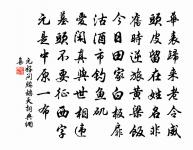 華表歸來老令威
頭皮留在姓名非
舊時逆旅黃粱飯
今日田家白板扉
沽酒市釣魚磯
愛閑真與世相違
墓頭不要征西字
元是中原一布
元好問鷓鴣天